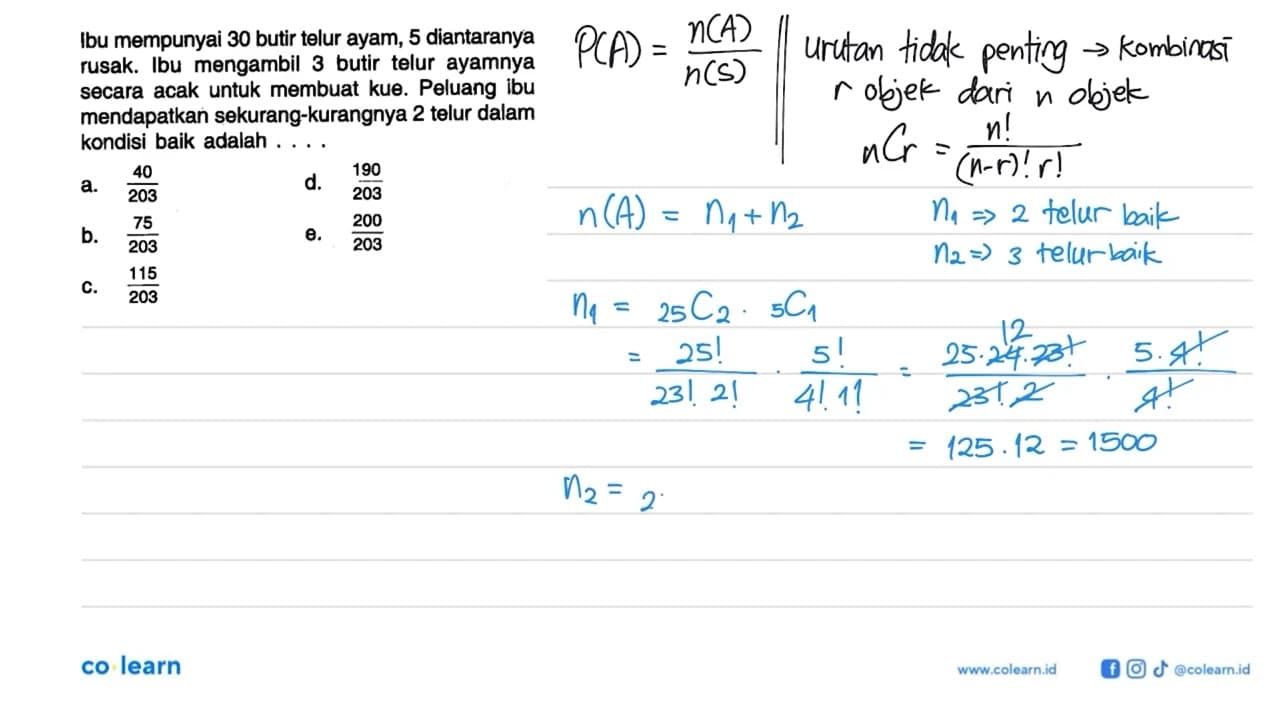 Ibu mempunyai 30 butir telur ayam, 5 diantaranya
rusak. Ibu mengambil 3 butir telur ayamnya
secara acak untuk membuat kue. Peluang ibu
mendapatkan sekurang-kurangnya 2 telur dalam
kondisi baik adalah . . . .
a. 40/203
b. 75/203
c. 115/203
d. 190/203
e. 200/203
P(A) = n(A)/n(S)
urutan tidak penting → kombinasi
r objek dari n objek
nCr = n!/(n-r)! r!
n(A) = n₁ + n₂
n₁ => 2 telur baik
n₂ => 3 telur baik
n₁ = ₂₅C₂ . ₅C₁
= 25!/23! 2! . 5!/4! 1! = 25.24.23!/23!.2 . 5.4!/4!
12
= 125.12 = 1500
n₂ = 2
co learn
www.colearn.id
@colearn.id